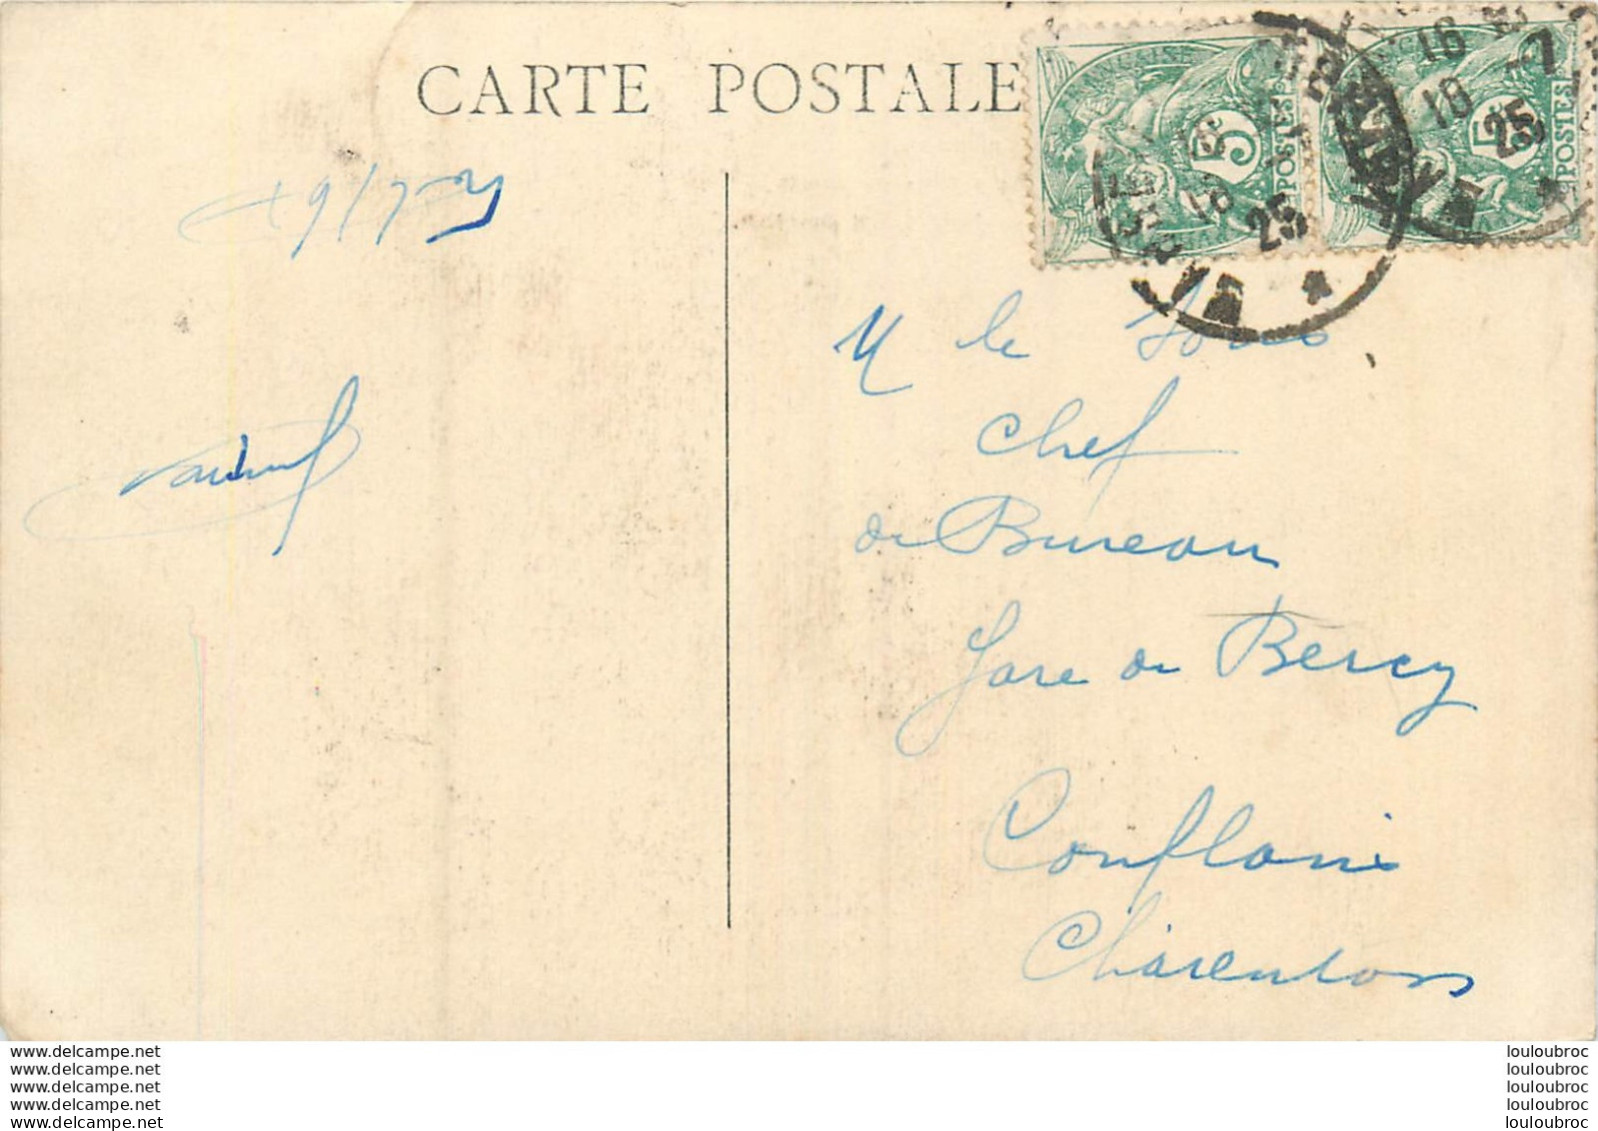 CARTE POSTALE
FRANÇAISE
5c
POSTES
5c
POSTES
16
18 -7
25
18
25
M le Sous
Chef
de Bureau
Gare de Bercy
Conflans
Charenton
www.delcampe.net
www.delcampe.net
www.delcampe.net
www.delcampe.net
www.delcampe.net
louloubroc
louloubroc
louloubroc
louloubroc
louloubroc